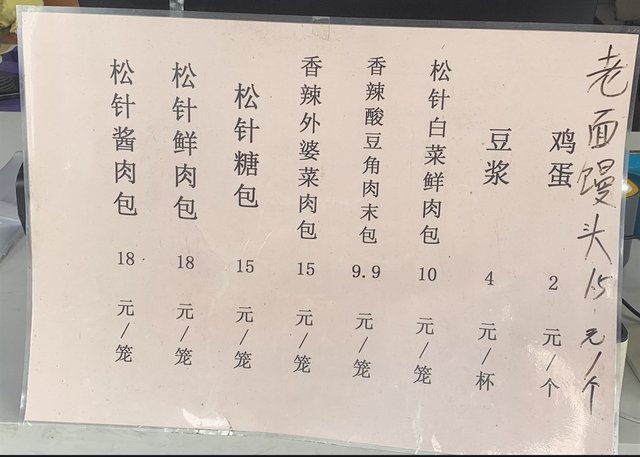 松针酱肉包 18 元/笼
松针鲜肉包 18 元/笼
松针糖包 15 元/笼
香辣外婆菜肉包 15 元/笼
香辣酸豆角肉末包 9.9 元/笼
松针白菜鲜肉包 10 元/笼
豆浆 4 元/杯
鸡蛋 2 元/个
老面馒头 1.5 元/个